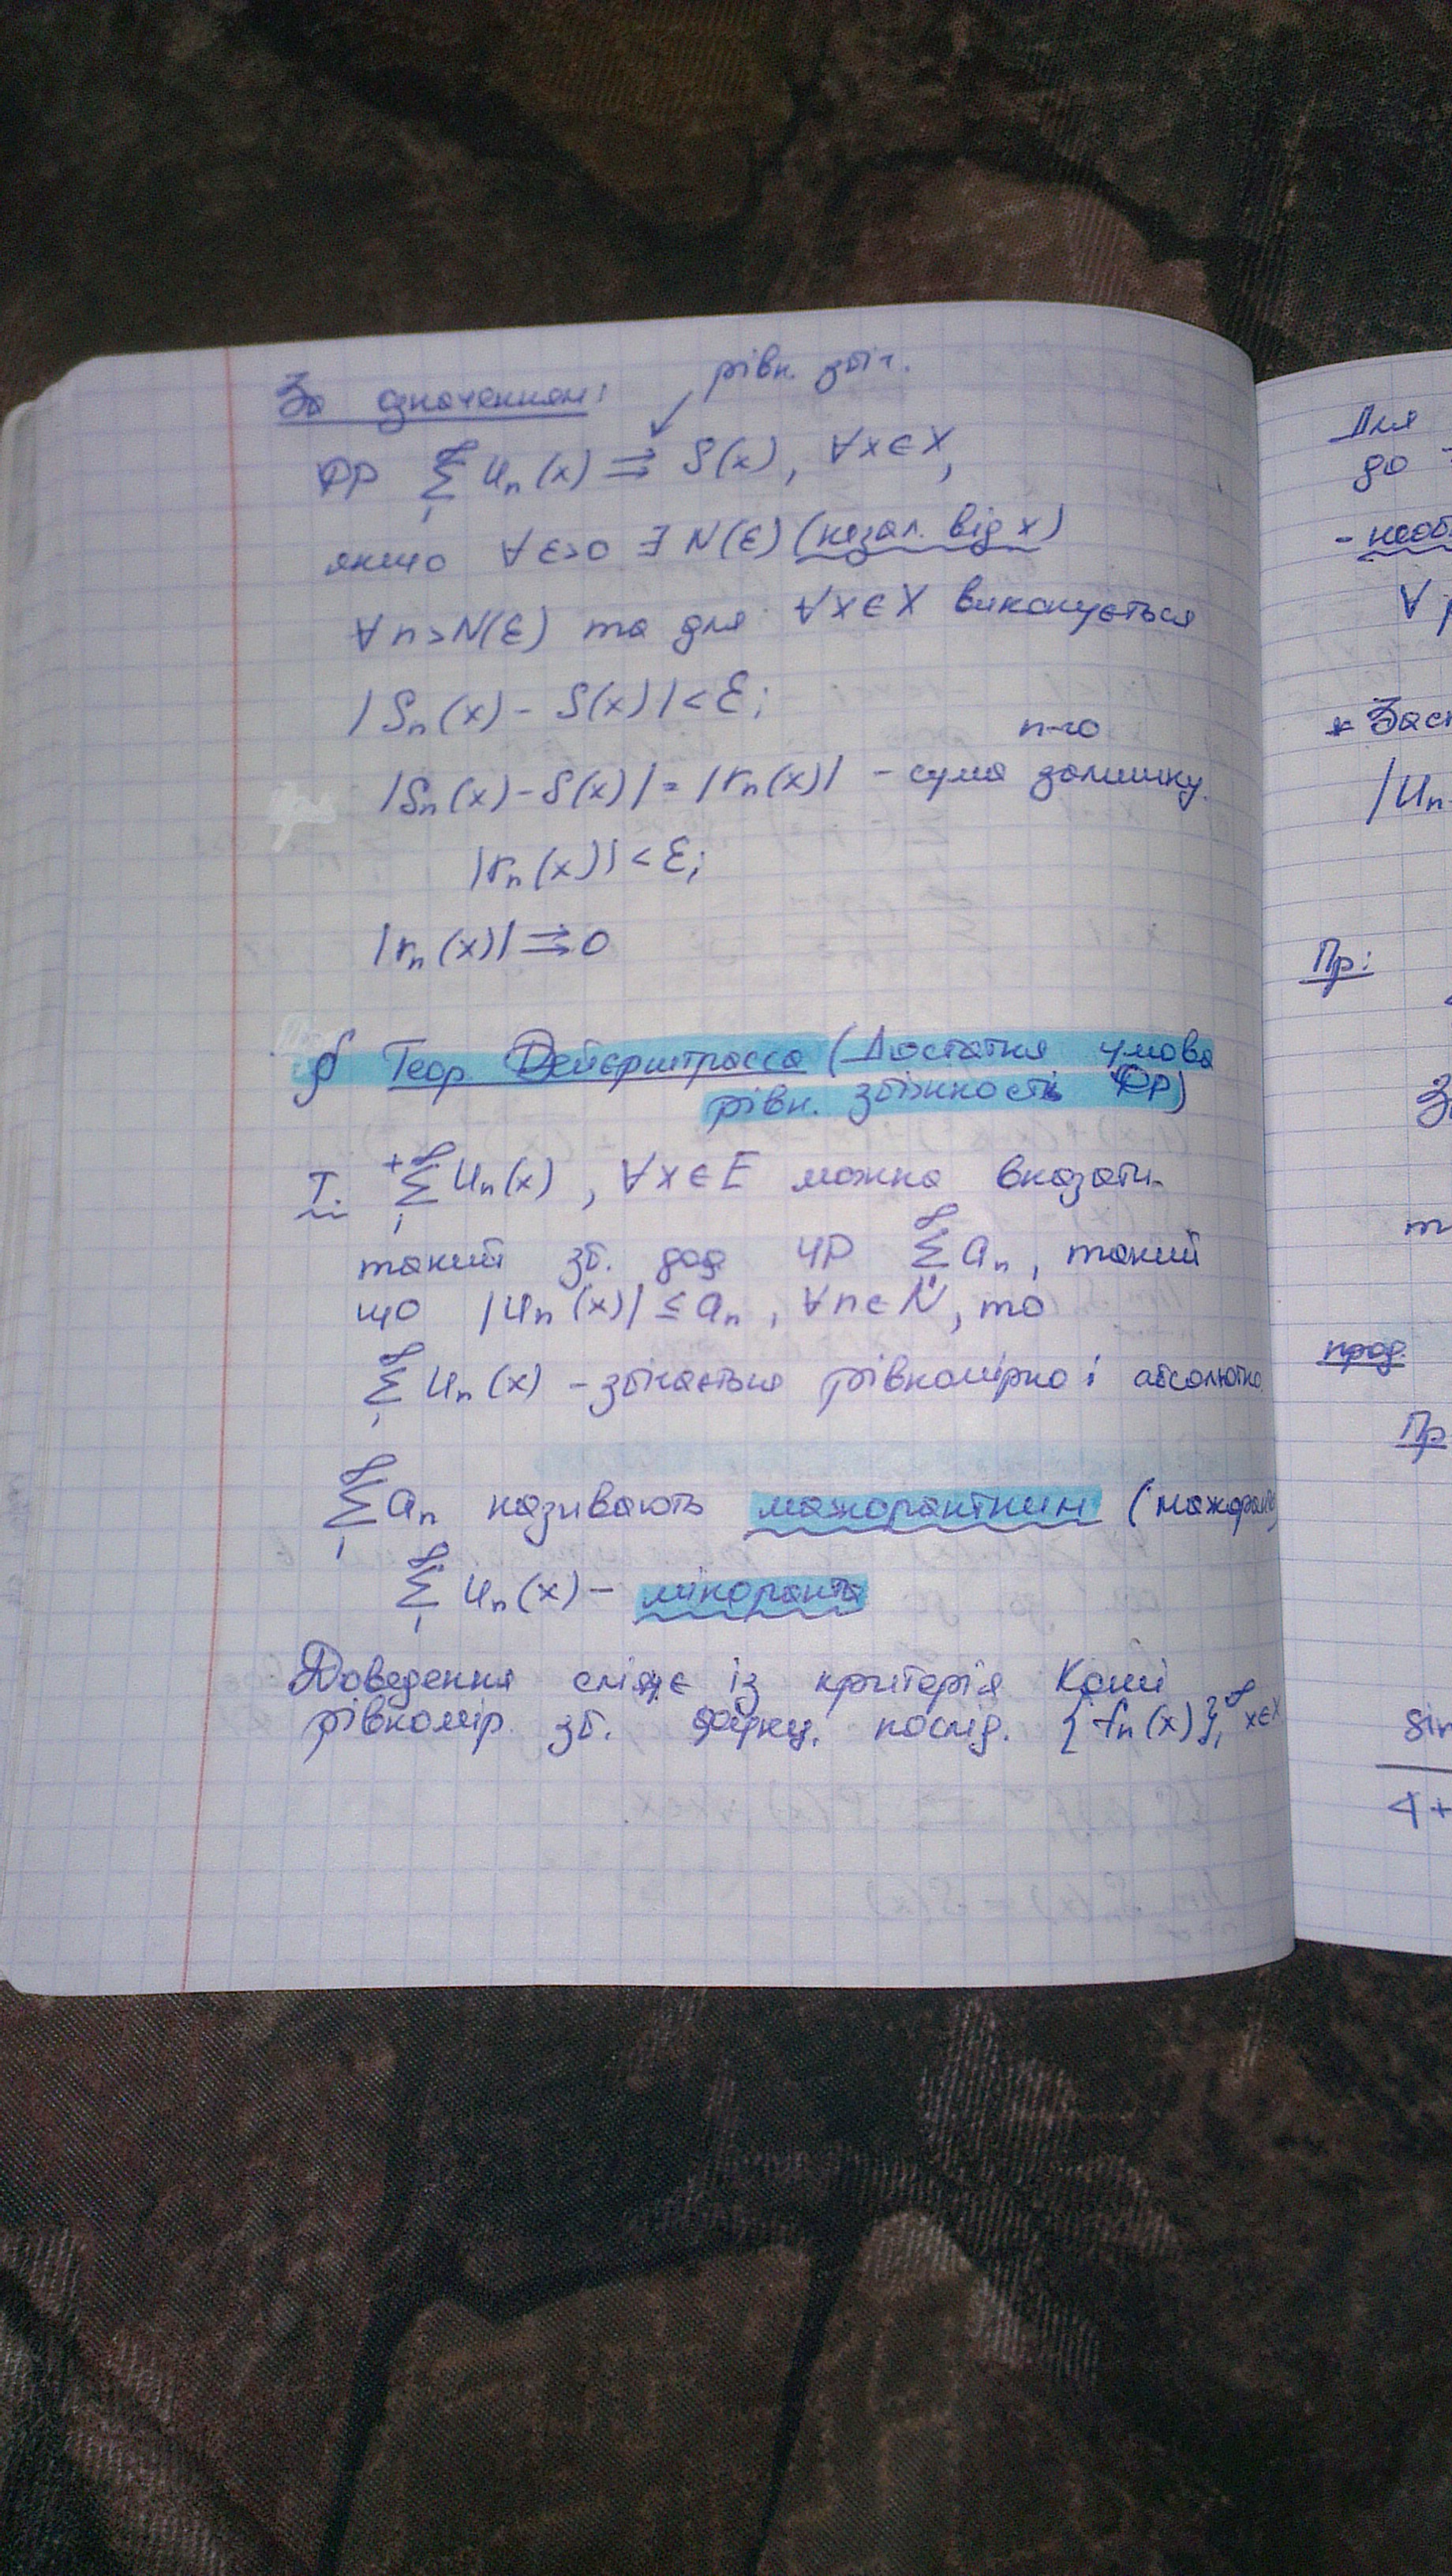 За означенням:
рівн. збіг.
ФР ∞ Σ 1 Uₙ(x) ⇉ S(x), ∀x∈X,
якщо ∀ε>0 ∃ N(ε) (незал. від x)
∀n>N(ε) та для ∀x∈X виконується
|Sₙ(x) - S(x)| < ε;
n-го
|Sₙ(x) - S(x)| = |rₙ(x)| - сума залишку.
|rₙ(x)| < ε;
|rₙ(x)| ⇉ 0
§ Теор. Вейєрштрасса (Достатня умова
рівн. збіжності ФР)
Т. +∞ Σ 1 Uₙ(x), ∀x∈E можна вказати
такий зб. дод ЧР ∞ Σ 1 aₙ, такий
що |Uₙ(x)| ≤ aₙ, ∀n∈N, то
∞ Σ 1 Uₙ(x) - збігається рівномірно і абсолютно
∞ Σ 1 aₙ називають мажорантним (мажоранта)
∞ Σ 1 Uₙ(x) - міноранта
Доведення слідує із критерія Коші
рівномір. зб. функц. послід. {fₙ(x)}₁^∞ x∈X
Для
до
- необ
∀
* Заст
|Uₙ
Пр:
З
т
прод.
Пр
sin
4+